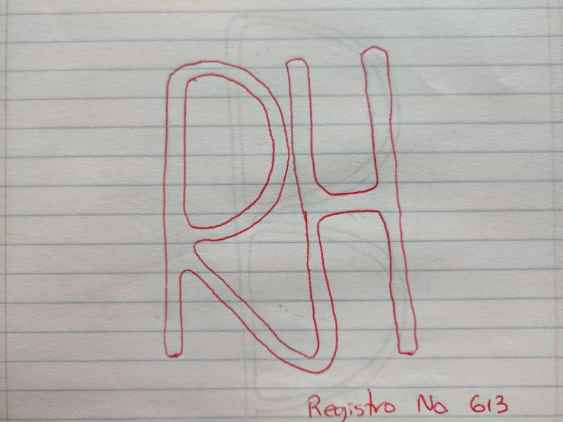 RH
Registro No 613